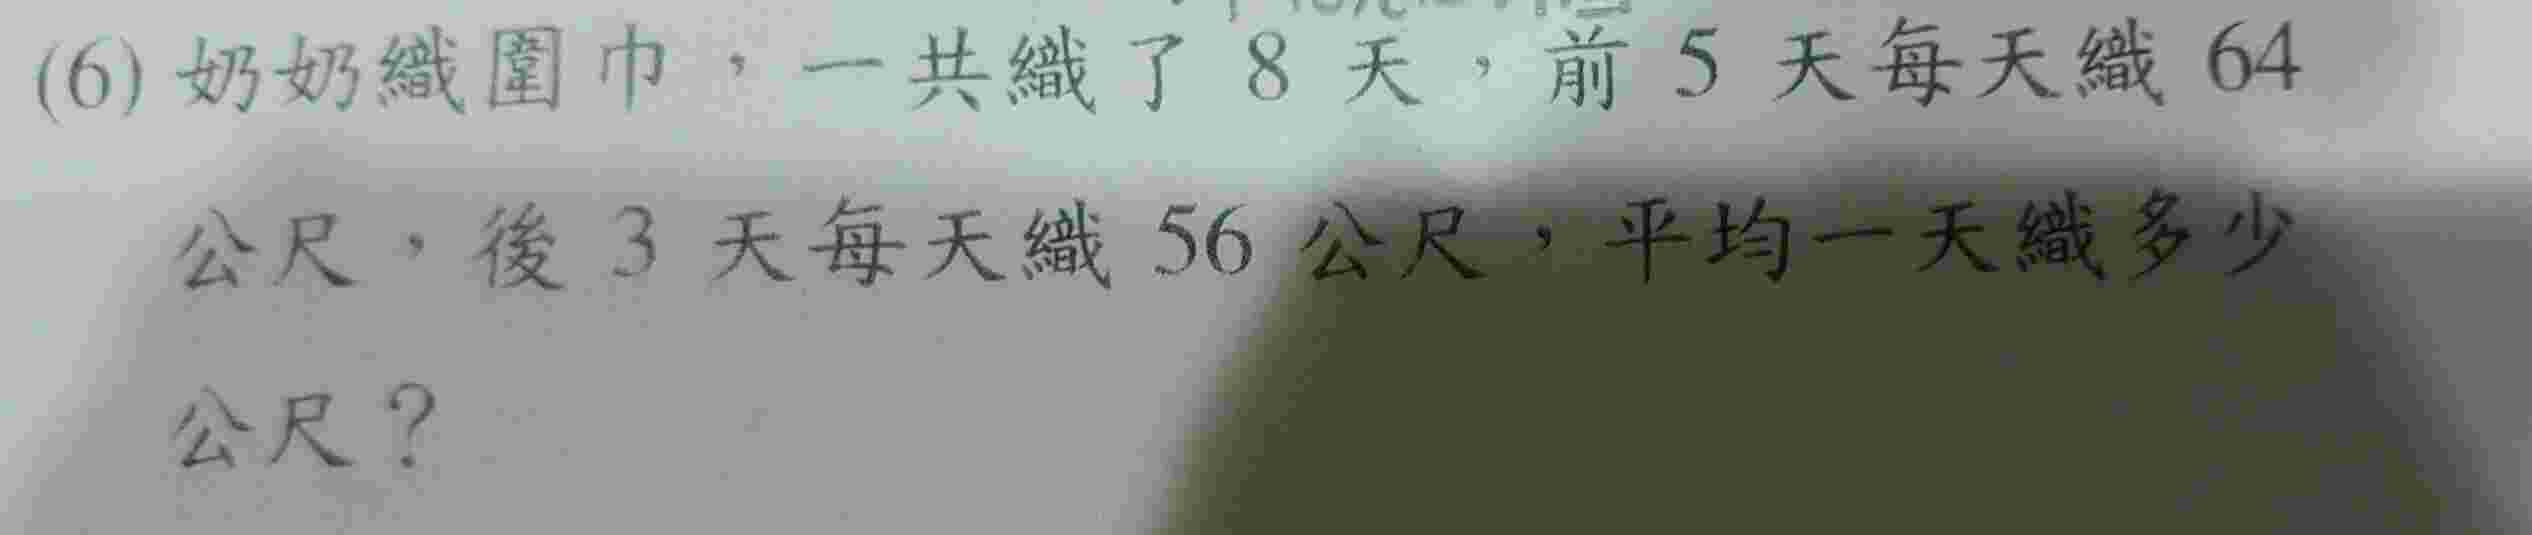 (6) 奶奶織圍巾，一共織了 8 天，前 5 天每天織 64
公尺，後 3 天每天織 56 公尺，平均一天織多少
公尺？